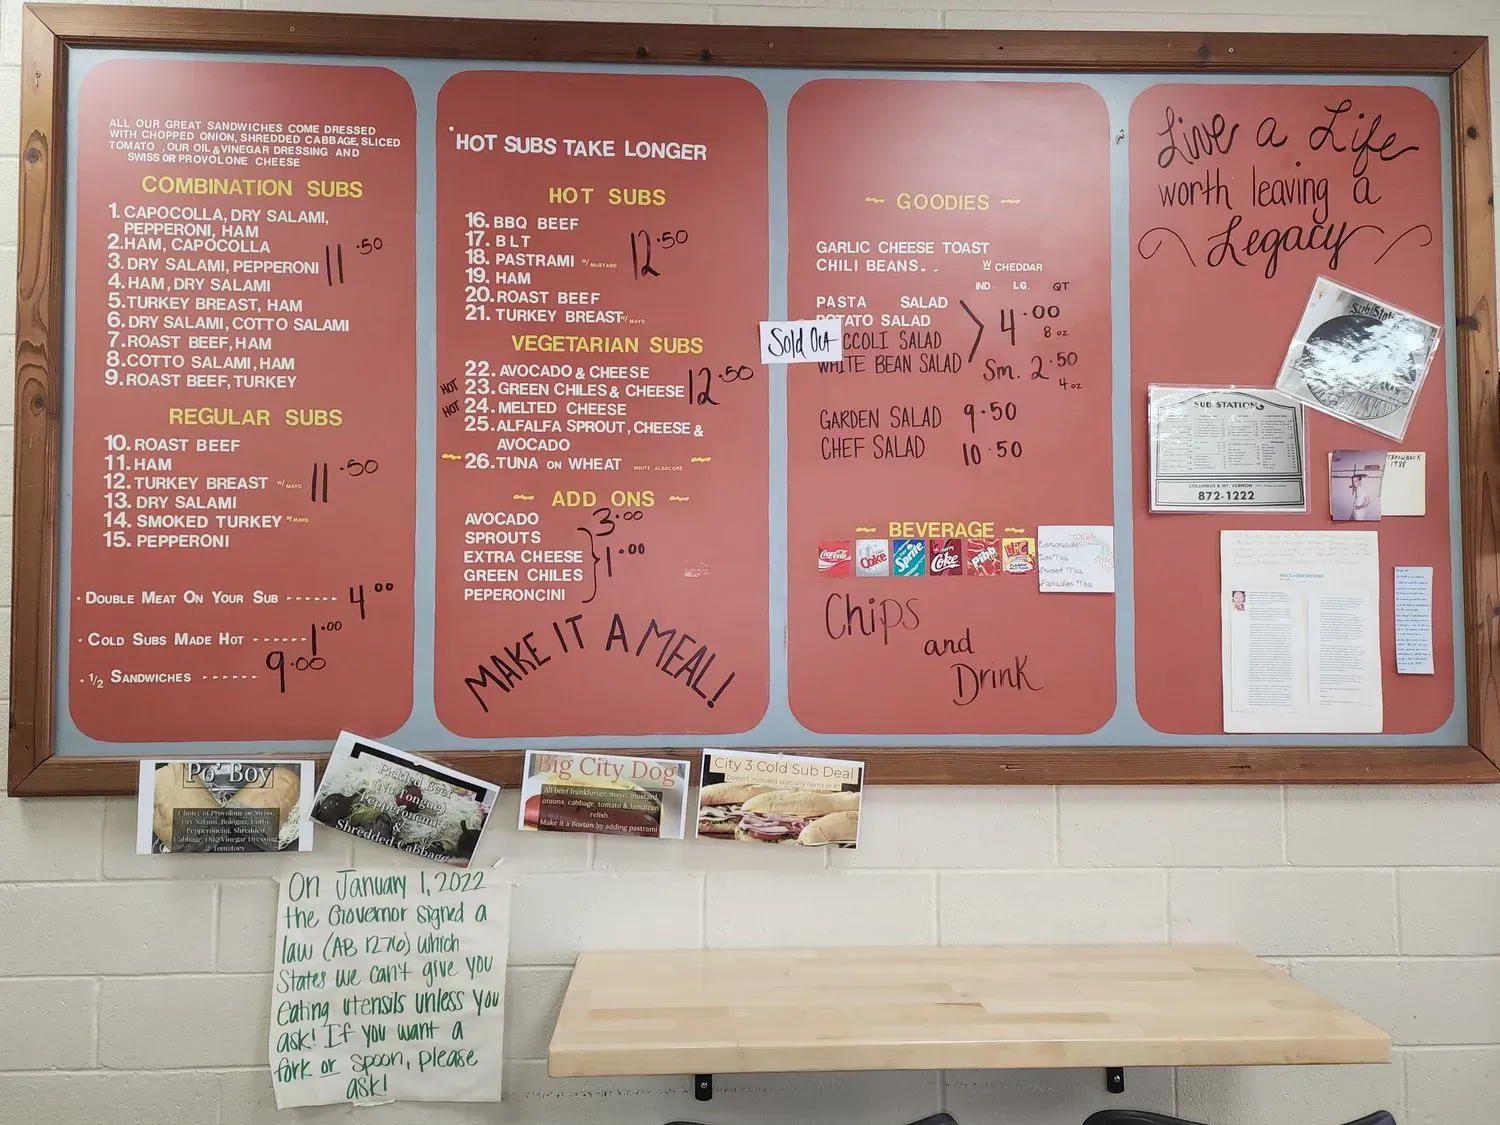 ALL OUR GREAT SANDWICHES COME DRESSED
WITH CHOPPED ONION, SHREDDED CABBAGE, SLICED
TOMATO, OUR OIL & VINEGAR DRESSING AND
SWISS OR PROVOLONE CHEESE
COMBINATION SUBS
1. CAPOCOLLA, DRY SALAMI,
PEPPERONI, HAM
2. HAM, CAPOCOLLA
3. DRY SALAMI, PEPPERONI
11.50
4. HAM, DRY SALAMI
5. TURKEY BREAST, HAM
6. DRY SALAMI, COTTO SALAMI
7. ROAST BEEF, HAM
8. COTTO SALAMI, HAM
9. ROAST BEEF, TURKEY
REGULAR SUBS
10. ROAST BEEF
11. HAM
12. TURKEY BREAST W/MAYO
11.50
13. DRY SALAMI
14. SMOKED TURKEY W/MAYO
15. PEPPERONI
· DOUBLE MEAT ON YOUR SUB ------ 4.00
· COLD SUBS MADE HOT ------ 1.00
· 1/2 SANDWICHES ------ 9.00
HOT SUBS TAKE LONGER
HOT SUBS
16. BBQ BEEF
17. BLT
18. PASTRAMI W/MUSTARD
12.50
19. HAM
20. ROAST BEEF
21. TURKEY BREAST W/MAYO
VEGETARIAN SUBS
22. AVOCADO & CHEESE
HOT 23. GREEN CHILES & CHEESE 12.50
HOT 24. MELTED CHEESE
25. ALFALFA SPROUT, CHEESE &
AVOCADO
~ 26. TUNA ON WHEAT WHITE ALBACORE ~
~ ADD ONS ~
AVOCADO 3.00
SPROUTS
EXTRA CHEESE 1.00
GREEN CHILES
PEPERONCINI
MAKE IT A MEAL!
~ GOODIES ~
GARLIC CHEESE TOAST
CHILI BEANS.. W CHEDDAR
IND. LG. QT
PASTA SALAD
POTATO SALAD
4.00
8 oz
Sold Out
CCOLI SALAD
WHITE BEAN SALAD
Sm. 2.50
4 oz
GARDEN SALAD 9.50
CHEF SALAD 10.50
~ BEVERAGE ~
Coca-Cola
Coke
Sprite
Coke
Pibb
Lemonade
Ice Tea
Sweet Tea
Chips
and
Drink
Live a Life
worth leaving a
Legacy
Sub Station
SUB STATION
COLUMBUS & MT. VERNON
872-1222
THROWBACK
1988
Po' Boy
Choice of Provolone or Swiss,
Dry Salami, Bologna, Cotto,
Pepperoncini, Shredded
Cabbage, Oil&Vinegar Dressing
& Tomatoes
Pickled Beef
(No Tongue)
Pepperoncini
&
Shredded Cabbage
Big City Dog
All beef frankfurter, mayo, mustard,
onions, cabbage, tomato & Jamaican
relish.
Make it a Boston by adding pastrami
City 3 Cold Sub Deal
On January 1, 2022
the Governor signed a
law (AB 1276) which
States we can't give you
eating utensils unless you
ask! If you want a
fork or spoon, please
ask!